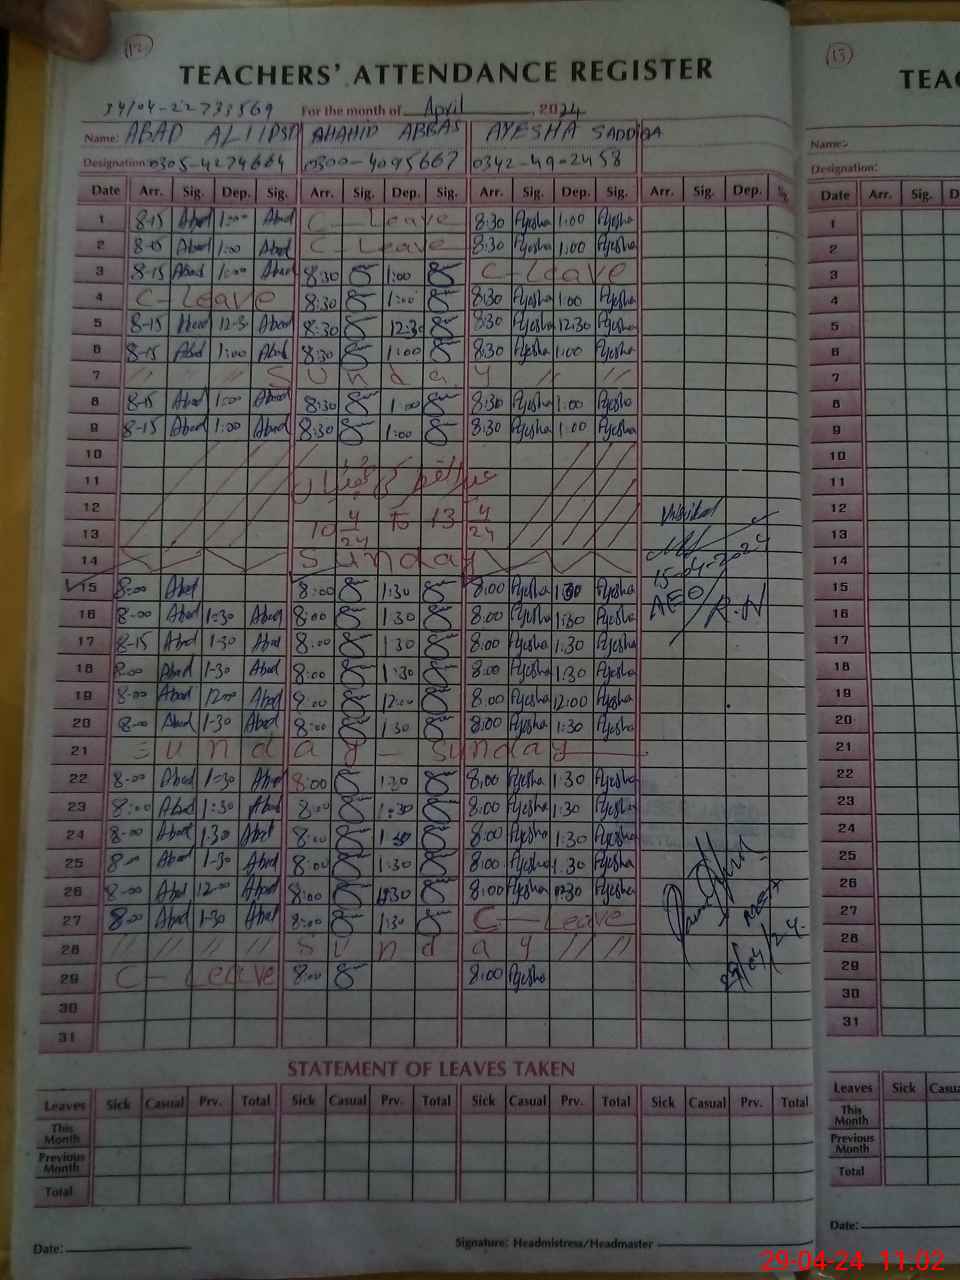 12
TEACHERS' ATTENDANCE REGISTER
For the month of April, 2024
Name: ABAD ALI SHAHID ABBAS AYESHA SADDIQA
Designation: 0305-4274664 0300-4095667 0342-49-2458
Date Arr. Sig. Dep. Sig. Arr. Sig. Dep. Sig. Arr. Sig. Dep. Sig. Arr. Sig. Dep. Sig.
1 8-15 Abad 1:00 Abad C-Leave 8:30 Ayesha 1:00 Ayesha
2 8-15 Abad 1:00 Abad C-Leave 8:30 Ayesha 1:00 Ayesha
3 8-15 Abad 1:00 Abad 8:30 1:00 C-Leave
4 C-Leave 8:30 1:00 8:30 Ayesha 1:00 Ayesha
5 8-15 Abad 12-30 Abad 8:30 12:30 8:30 Ayesha 12:30 Ayesha
6 8-15 Abad 1:00 Abad 8:30 1:00 8:30 Ayesha 1:00 Ayesha
7 Sunday
8 8-15 Abad 1:00 Abad 8:30 1:00 8:30 Ayesha 1:00 Ayesha
9 8-15 Abad 1:00 Abad 8:30 1:00 8:30 Ayesha 1:00 Ayesha
10
11
12
13 10 4/24 To 13 4/24
14 Sunday
15 8:00 Abad 8:00 1:30 8:00 Ayesha 1:30 Ayesha
16 8-00 Abad 1:30 Abad 8:00 1:30 8:00 Ayesha 1:30 Ayesha
17 8-15 Abad 1-30 Abad 8:00 1:30 8:00 Ayesha 1:30 Ayesha
18 8:00 Abad 1-30 Abad 8:00 1:30 8:00 Ayesha 1:30 Ayesha
19 8-00 Abad 12-00 Abad 8:00 12:00 8:00 Ayesha 12:00 Ayesha
20 8-00 Abad 1-30 Abad 8:00 1:30 8:00 Ayesha 1:30 Ayesha
21 Sunday - Sunday
22 8-00 Abad 1-30 Abad 8:00 1:30 8:00 Ayesha 1:30 Ayesha
23 8:00 Abad 1:30 Abad 8:00 1:30 8:00 Ayesha 1:30 Ayesha
24 8-00 Abad 1-30 Abad 8:00 1:30 8:00 Ayesha 1:30 Ayesha
25 8-00 Abad 1-30 Abad 8:00 1:30 8:00 Ayesha 1:30 Ayesha
26 8-00 Abad 12-00 Abad 8:00 8:00 Ayesha Ayesha
27 8-00 Abad 1-30 Abad 8:00 1:30 C-Leave
28 Sunday
29 C-Leave 8:00 8:00 Ayesha
30
31
Visited
15-04-2024
AEO/R.W
MEA
29/04/24
STATEMENT OF LEAVES TAKEN
Leaves Sick Casual Prv. Total Sick Casual Prv. Total Sick Casual Prv. Total Sick Casual Prv. Total
This Month
Previous Month
Total
Date:
Signature: Headmistress/Headmaster
13
TEAC
Name:
Designation:
Date Arr. Sig.
1
2
3
4
5
6
7
8
9
10
11
12
13
14
15
16
17
18
19
20
21
22
23
24
25
26
27
28
29
30
31
Leaves Sick
This Month
Previous Month
Total
Date:
29-04-24 11:02